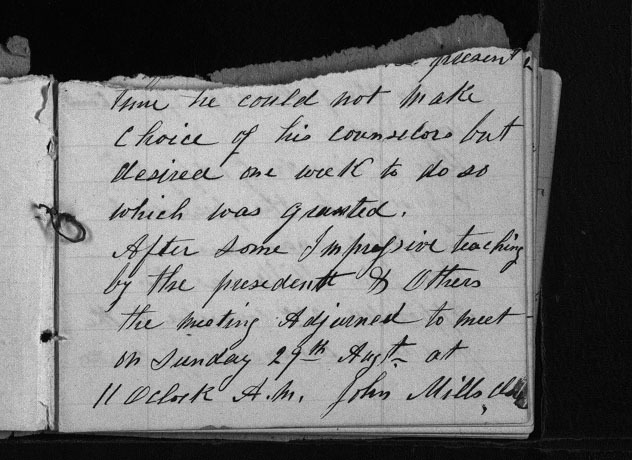 present
time he could not make
choice of his counselors but
desired one week to do so
which was granted.
After some Impressive teaching
by the president & Others
the meeting Adjurned to meet
on Sunday 29th Augt. at
11 Oclock A.M. John Mills Clk